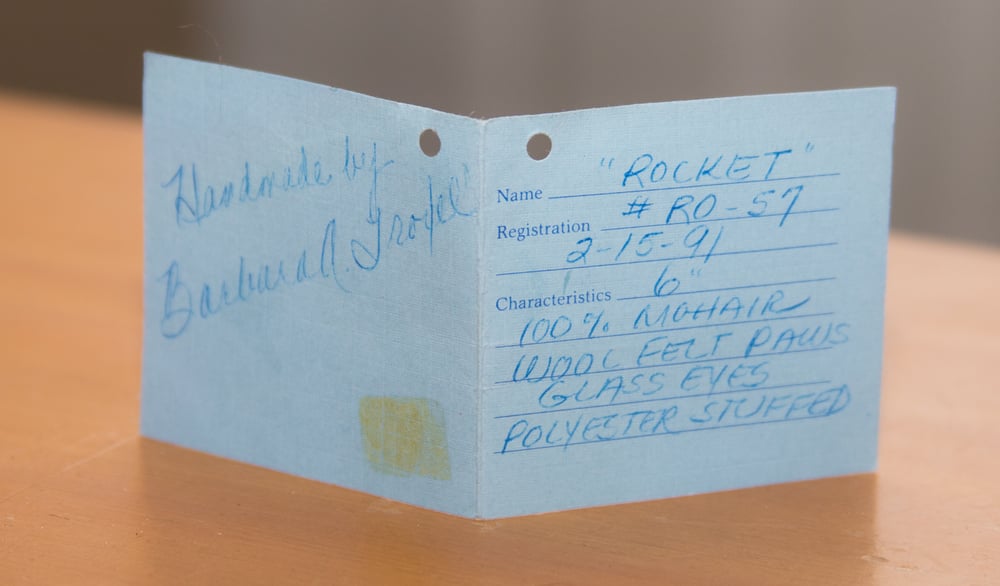 Handmade by
Barbara A.
Name "ROCKET"
Registration # RO-57
2-15-91
Characteristics 6"
100% MOHAIR
WOOL FELT PAWS
GLASS EYES
POLYESTER STUFFED